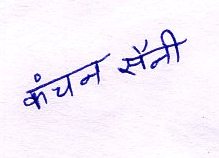 कंचन सैनी